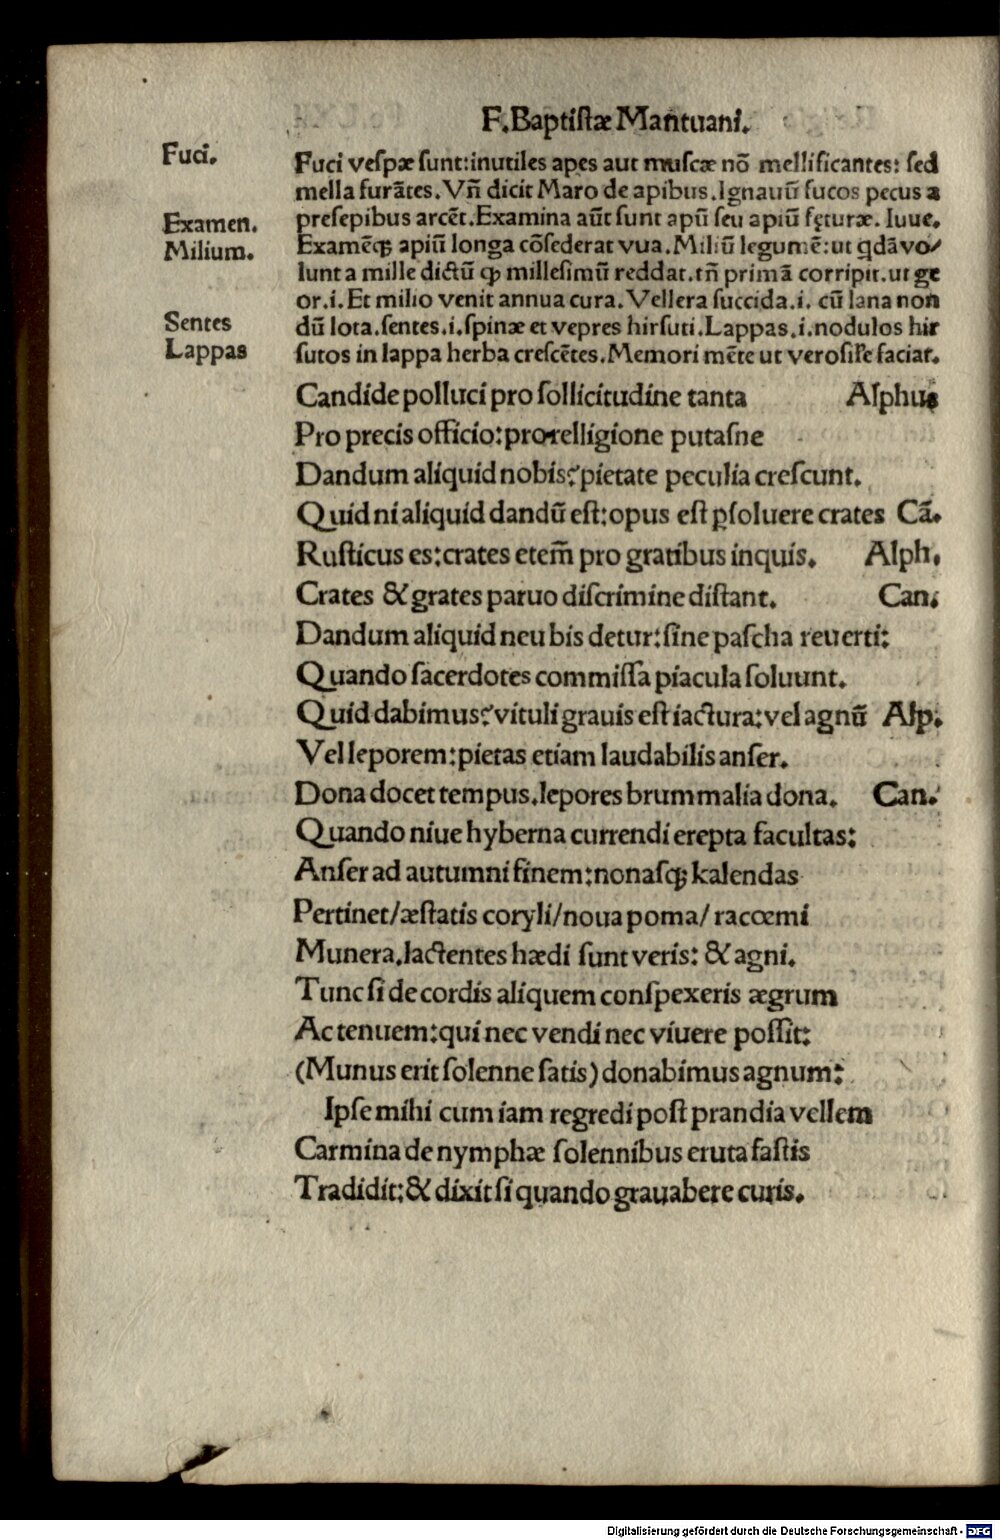 F.Baptiſtæ Mantuani.
Fuci.
Fuci veſpæ ſunt:inutiles apes aut muſcæ nō mellificantes: ſed
mella furātes. Vñ dicit Maro de apibus. Ignauū fucos pecus a
Examen.
preſepibus arcēt. Examina aūt ſunt apū ſeu apiū fęturæ. Iuue.
Milium.
Examēqꝫ apiū longa cōſederat vua. Miliū legumē: ut qdā vo/
lunt a mille dictū ꝙ milleſimū reddat. tñ primā corripit. ut ge
or.i. Et milio venit annua cura. Vellera ſuccida.i. cū lana non
Sentes
dū lota. ſentes.i.ſpinæ et vepres hirſuti. Lappas.i.nodulos hir
Lappas
ſutos in lappa herba creſcētes. Memori mēte ut veroſiľe faciat.
Candide polluci pro ſollicitudine tanta Alphus
Pro precis officio: pro relligione putaſne
Dandum aliquid nobis? pietate peculia creſcunt.
Quid ni aliquid dandū eſt: opus eſt ꝑſoluere crates Cā.
Ruſticus es: crates etem̄ pro gratibus inquis. Alph.
Crates & grates paruo diſcrimine diſtant. Can.
Dandum aliquid neu bis detur: ſine paſcha reuerti:
Quando ſacerdotes commiſſa piacula ſoluunt.
Quid dabimus? vituli grauis eſt iactura: vel agnū Alp.
Vel leporem: pietas etiam laudabilis anſer.
Dona docet tempus. lepores brummalia dona. Can.
Quando niue hyberna currendi erepta facultas:
Anſer ad autumni finem: nonaſqꝫ kalendas
Pertinet/æſtatis coryli/noua poma/ racœmi
Munera. lactentes hædi ſunt veris: & agni.
Tunc ſi de cordis aliquem conſpexeris ægrum
Ac tenuem: qui nec vendi nec viuere poſſit:
(Munus erit ſolenne ſatis) donabimus agnum:
Ipſe mihi cum iam regredi poſt prandia vellem
Carmina de nymphæ ſolennibus eruta faſtis
Tradidit: & dixit ſi quando grauabere curis.
Digitalisierung gefördert durch die Deutsche Forschungsgemeinschaft - DFG